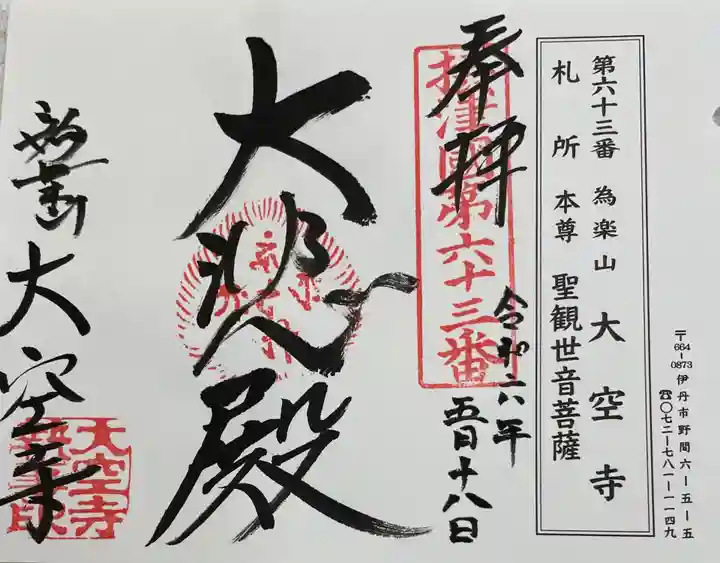 第六十三番 為楽山 大空寺
札所本尊 聖観世音菩薩
〒664-0873 伊丹市野間六-五-五
☎〇七二-七八一-一一四九
奉拝
摂津國第六十三番
令和六年
五月十八日
大悲殿
大空寺
大空寺